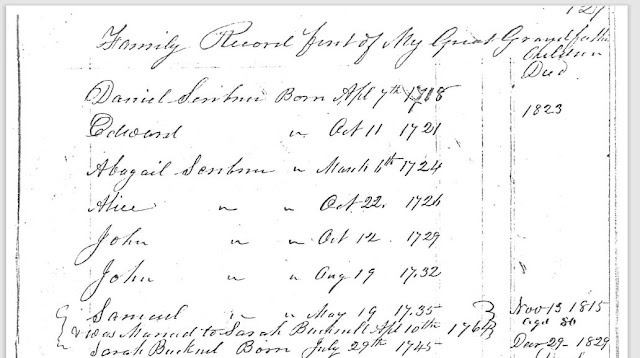 127
Family Record first of My Great Grandfathe
Children
Died
Daniel Scribner Born Apl 7th 1718
1823
Edward " Oct 11 1721
Abagail Scribner " March 6th 1724
Alice " " Oct 22. 1726
John " " Oct 12. 1729
John " " Aug 19 17.32
Samuel " " May 19 17.35 Nov 13 1815
aged 80
was Married to Sarah Bucknell Apl 10th 1764
Sarah Bucknel Born July 29th 1745 Dec 29 - 1829